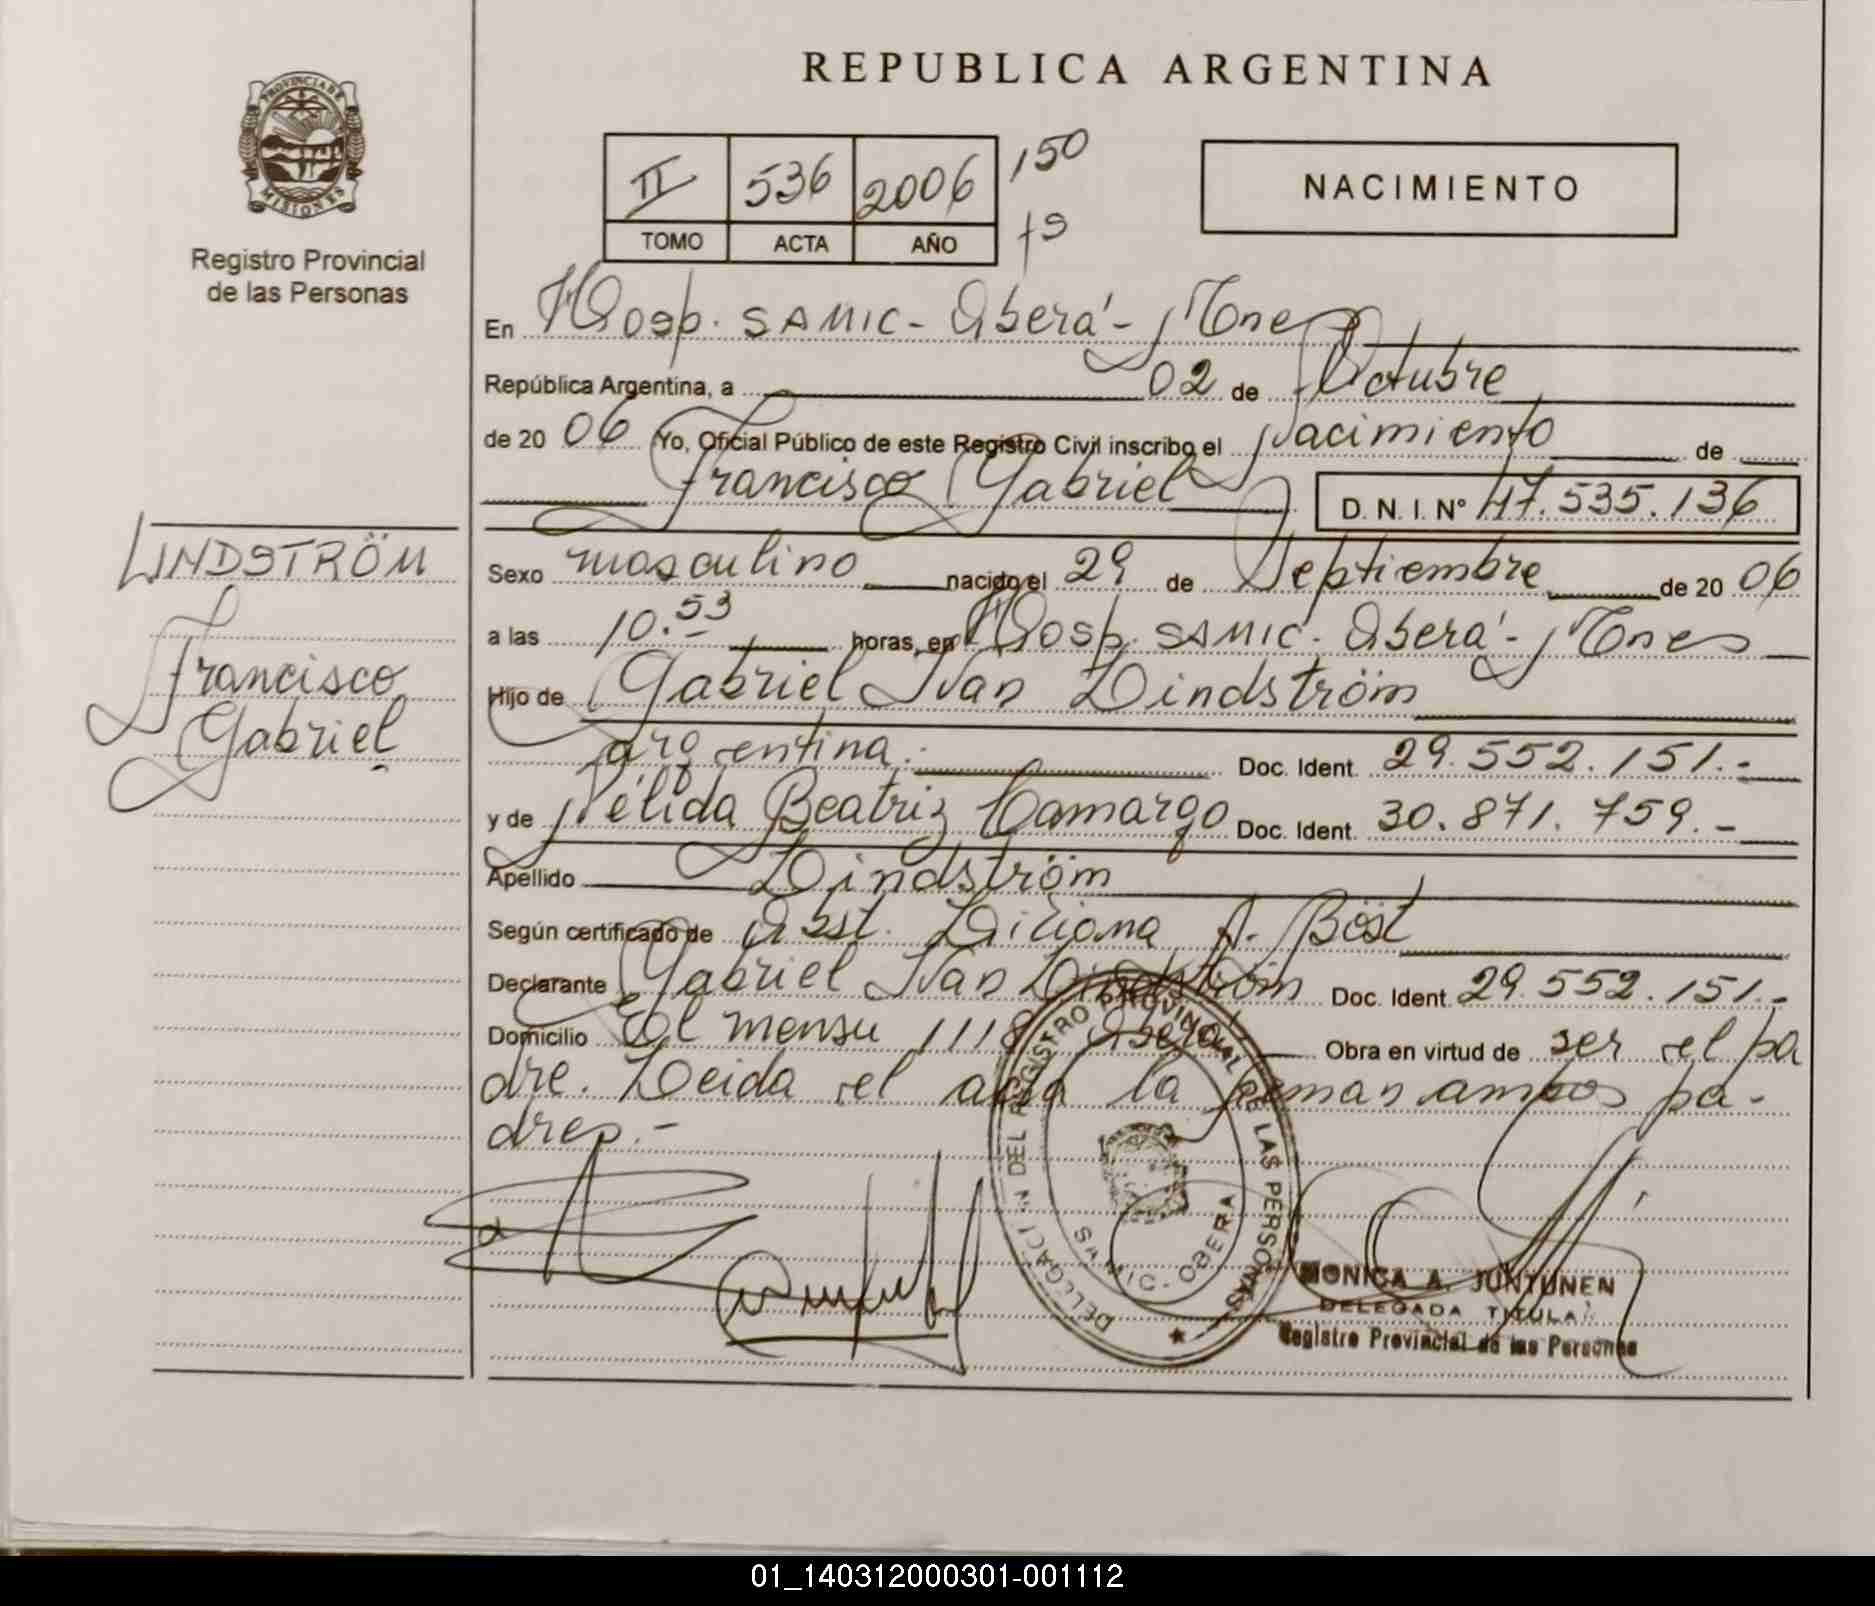 REPUBLICA ARGENTINA
PROVINCIA DE
MISIONES
Registro Provincial
de las Personas
II 536 2006 150
TOMO ACTA AÑO
NACIMIENTO
En Hosp. SAMIC - Oberá - Mnes
República Argentina, a 02 de Octubre
de 20 06 Yo, Oficial Público de este Registro Civil inscribo el Nacimiento de
Francisco Gabriel D. N. I. Nº 47.535.136
LINDSTRÖM
Francisco
Gabriel
Sexo masculino nacido el 29 de Septiembre de 20 06
a las 10.53 horas, en Hosp. SAMIC. Oberá - Mnes
Hijo de Gabriel Iván Lindström
argentina. Doc. Ident. 29.552.151.-
y de Nélida Beatriz Camargo Doc. Ident. 30.871.759.-
Apellido Lindström
Según certificado de Obst. Liliana A. Böst
Declarante Gabriel Iván Lindström Doc. Ident. 29.552.151.-
Domicilio El mensu 1118 Oberá Obra en virtud de ser el pa
dre. Leida el acta la firman ambos pa-
dres.-
DELEGACION DEL REGISTRO PROVINCIAL DE LAS PERSONAS
SAMIC - OBERA
MONICA A. JUNTUNEN
DELEGADA TITULAR
Registro Provincial de las Personas
01_140312000301-001112